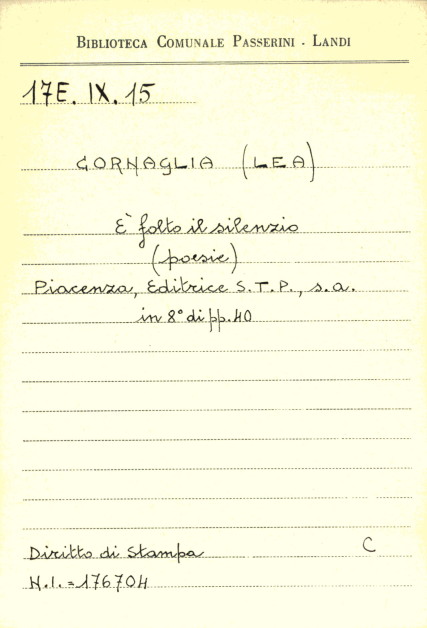 BIBLIOTECA COMUNALE PASSERINI - LANDI
17E. IX. 15
GORNAGLIA (LEA)
È folto il silenzio
(poesie)
Piacenza, Editrice S.T.P., s.a.
in 8° di pp. 40
Diritto di Stampa C
N.I. = 176704